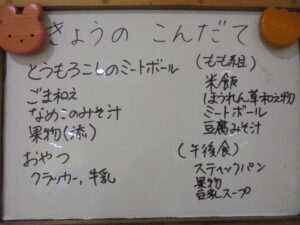 きょうの こんだて
とうもろこしのミートボール
ごま和え
なめこのみそ汁
果物(添)
おやつ
クラッカー, 牛乳
(もも組)
米飯
ほうれん草和え物
ミートボール
豆腐みそ汁
(午後食)
スティックパン
果物
豆乳スープ